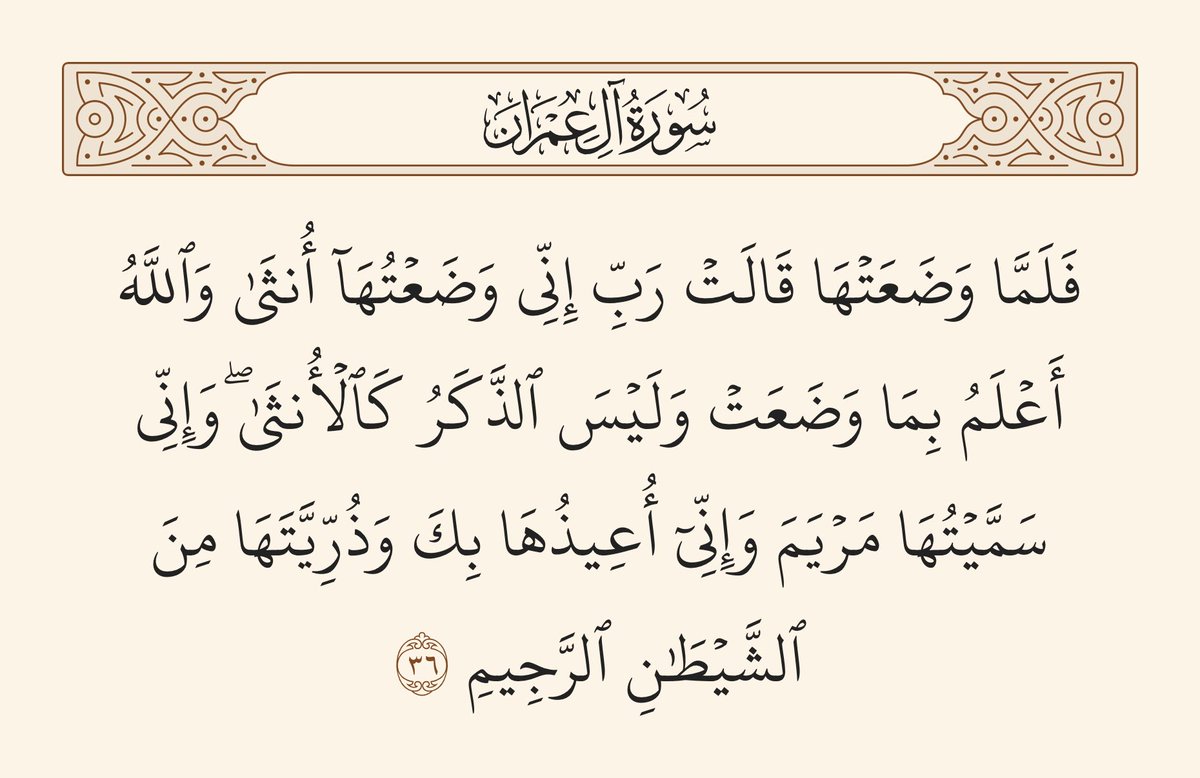 سُورَةُ آلِ عِمْرَانَ
فَلَمَّا وَضَعَتۡهَا قَالَتۡ رَبِّ إِنِّي وَضَعۡتُهَآ أُنثَىٰ وَٱللَّهُ
أَعۡلَمُ بِمَا وَضَعَتۡ وَلَيۡسَ ٱلذَّكَرُ كَٱلۡأُنثَىٰۖ وَإِنِّي
سَمَّيۡتُهَا مَرۡيَمَ وَإِنِّيٓ أُعِيذُهَا بِكَ وَذُرِّيَّتَهَا مِنَ
ٱلشَّيۡطَٰنِ ٱلرَّجِيمِ ٣٦